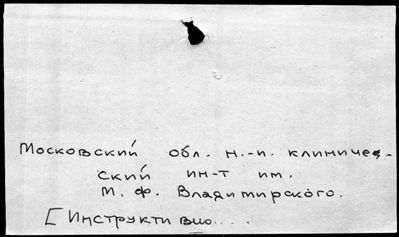 Московский обл. н.-и. клиниче-
ский ин-т им.
М. Ф. Владимирского.
[Инструктивно....